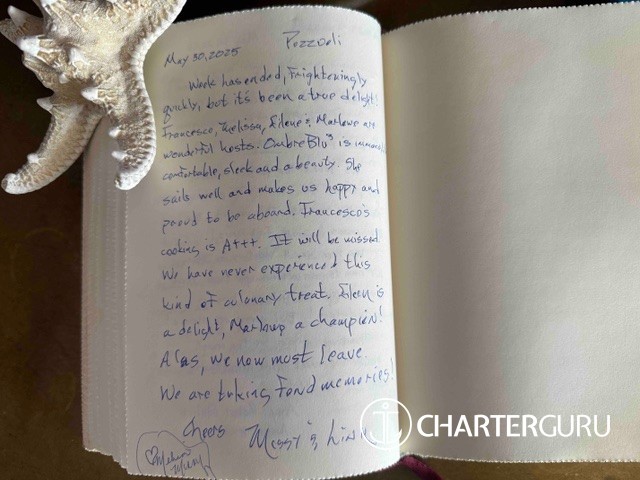 May 30, 2025 Pozzuoli
Week has ended, Frighteningly
quickly, but it's been a true delight!
Francesco, Melissa, Eilene & Marlowe are
wonderful hosts. OmbreBlu 3 is
comfortable, sleek and a beauty. She
sails well and makes us happy and
proud to be aboard. Francesco's
cooking is A+++. It will be missed
We have never experienced this
kind of culanary treat. Eileen is
a delight, Marlowe a champion!
Alas, we now must leave.
We are taking fond memories!
Cheers Missy &
CHARTERGURU